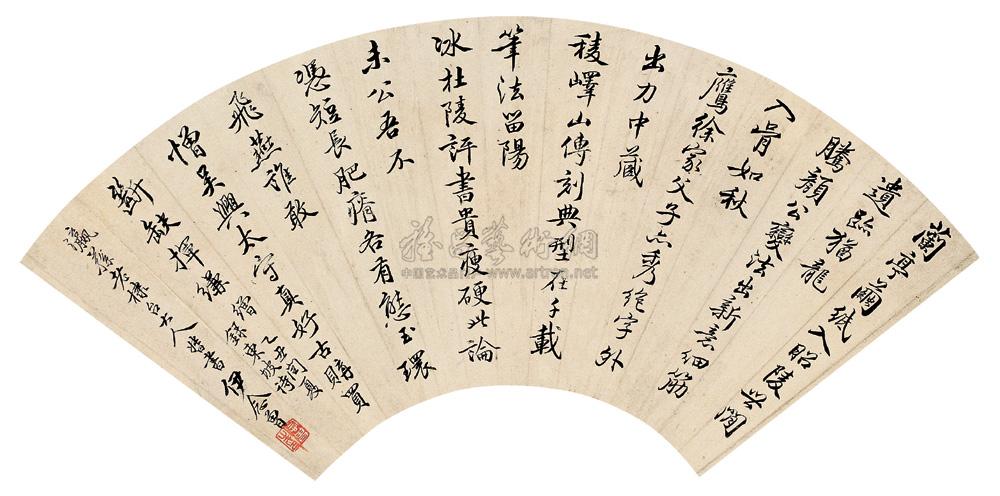 蘭亭繭紙入昭陵世間
遺跡猶龍
騰顏公變法出新意細筋
入骨如秋
鷹徐家父子亦秀絕字外
出力中藏
稜嶧山傳刻典型在千載
筆法留陽
冰杜陵評書貴瘦硬此論
未公吾不
憑短長肥瘠各有態玉環
飛燕誰敢
憎吳興太守真好古購買
斷缺揮縑
繒錄東坡詩
乙丑閏夏
瀛孫老棣台大人
書伊念曾
雅昌藝術網
artron.net